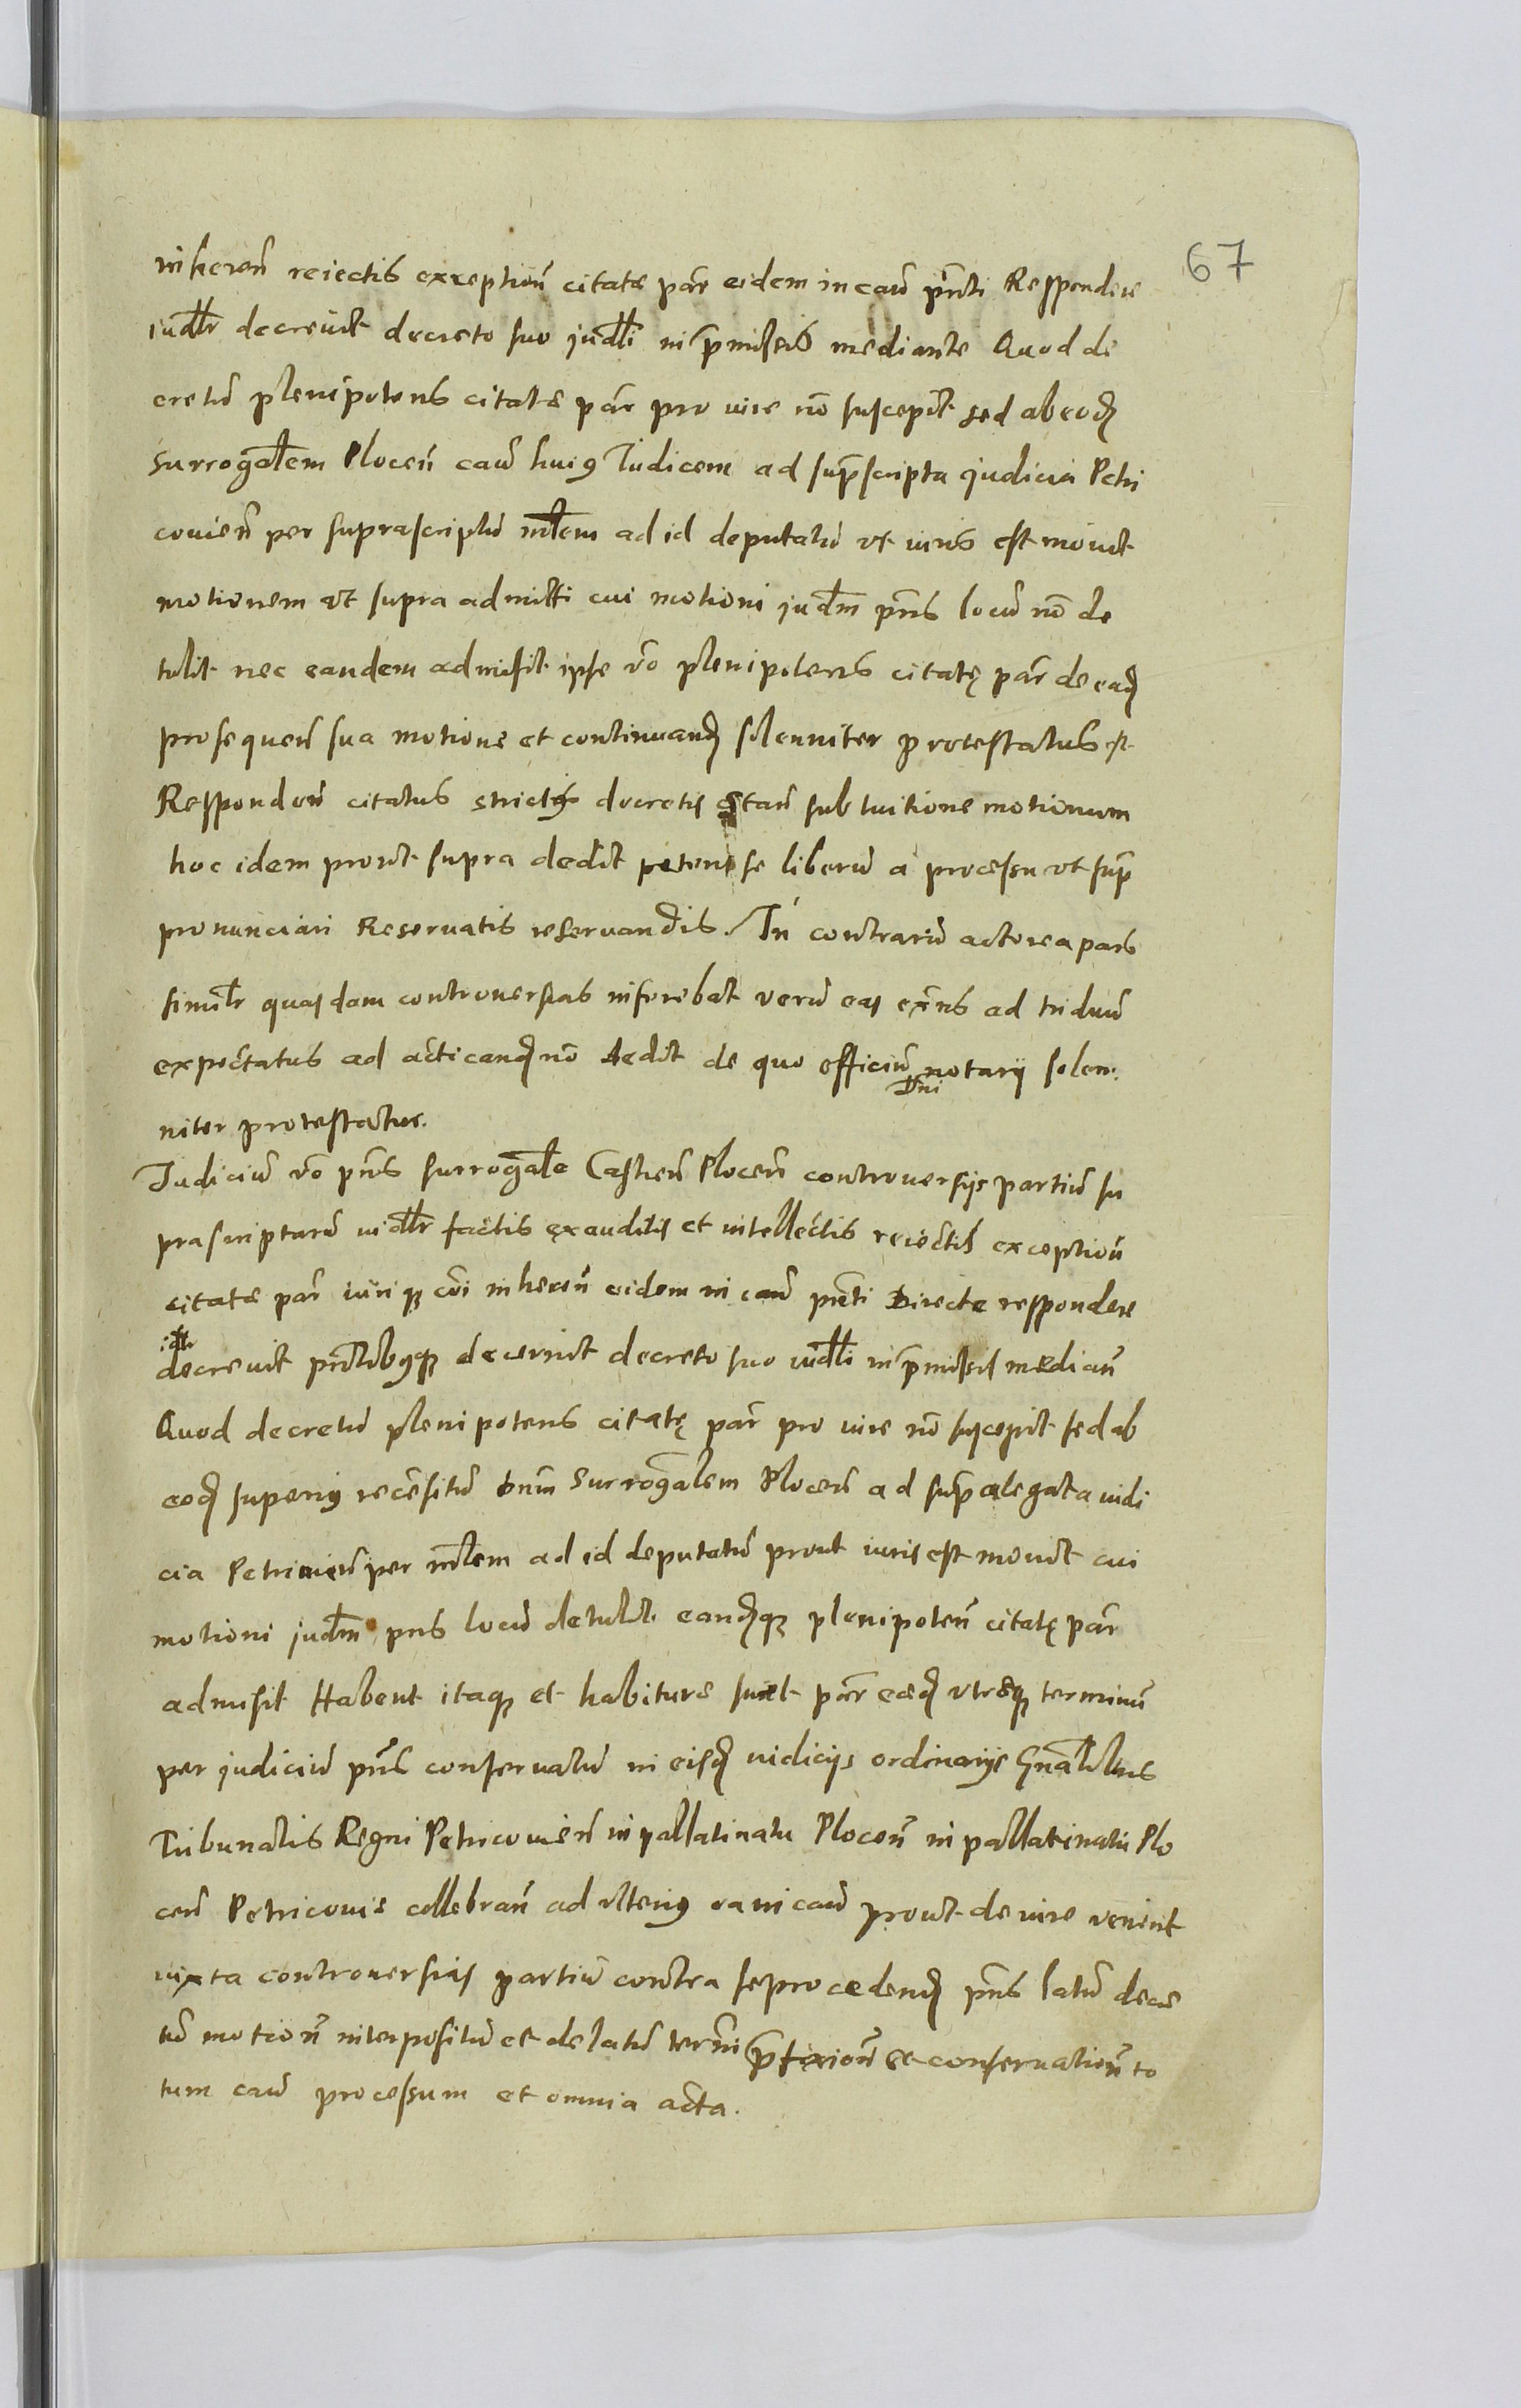 67
inheren̄ reiectis exception̄ citatæ par̄ eidem in caū pn̄ti Respondere
iudlr decrevit decreto suo judli in p̄missis mediante Quod de
cretū plenipotens citatæ par̄ pro iure nō suscepit sed ab eod
surrogālem Plocen̄ caū huius Judicem ad sup̄scripta judicia Petri
covien̄ per suprascriptū mlem ad id deputatū vt iuris est movit
motionem vt supra admitti cui motioni judm pn̄s locū nō de
tulit nec eandem admisit ipse vō plenipotens citatę par̄ de ead
prosequen̄ sua motione et continuand solenniter protestatus est
Responden̄ citatus strictus decretis stan̄ sub tuitione motionum
hoc idem prout supra dedit petens se liberū a processu vt sup̄
pronunciari Reservatis reservandis. In contrariū actorea pars
similr quasdam controversias inferebat verū eas ex̄ns ad triduū
expectatus ad acticand nō dedit de quo officiū Dni notarij solen:
niter protestatur.
Judiciū vō pn̄s surrogāle Castren̄ Plocen̄ controversijs partiū su
prascriptarū iudlr factis exauditis et intellectis reiectis exception̄
citatæ par̄ iuriq cōi inheren̄ eidem in caū pn̄ti Directe respondere
idlr
decrevit pn̄tibusq decernit decreto suo iudli in p̄missis median̄
Quod decretū plenipotens citatę par̄ pro iure nō suscepit sed ab
eod superius recensitū dnm Surrogālem Plocen̄ ad sup̄ alegata iudi
cia Petricovien̄ per mlem ad id deputatū prout iuris est movit cui
motioni judm pn̄s locū detulit eandq plenipoten̄ citatę par̄
admisit Habent itaq et habituræ sunt par̄ eæd vtræq terminū
per judiciū pn̄s conservatū in eisd iudicijs ordinarijs Gnālibus
Tribunalis Regni Petricovien̄ in pallatinatu Plocen̄ in pallatinatu Plo
cen̄ Petricoviæ cellebran̄ ad vlterius ea in caū prout de iure venerit
iuxta controversias partiū contra se procedend pn̄s latū decre
tū motion̄ interpositū et delatū termi p̄fixion̄ et conservation̄ to
tum caū processum et omnia acta.